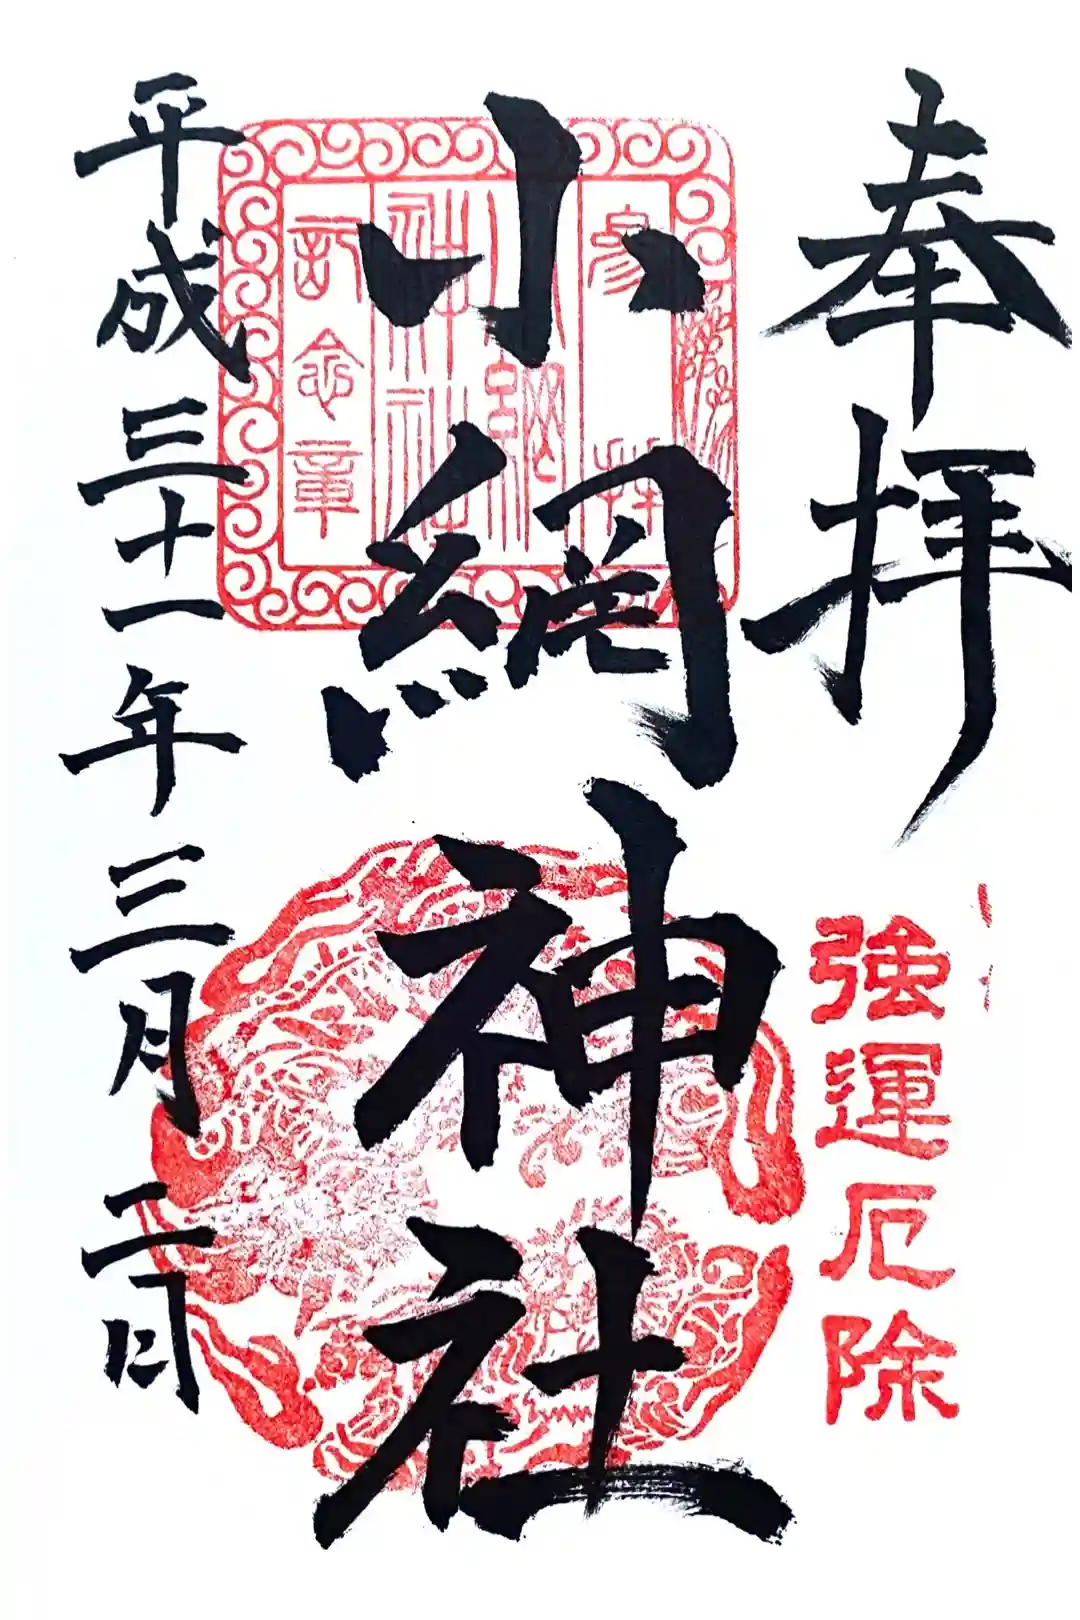 奉拝
強運厄除
小網神社
参拝
小網
神社
記念章
平成三十一年三月二日